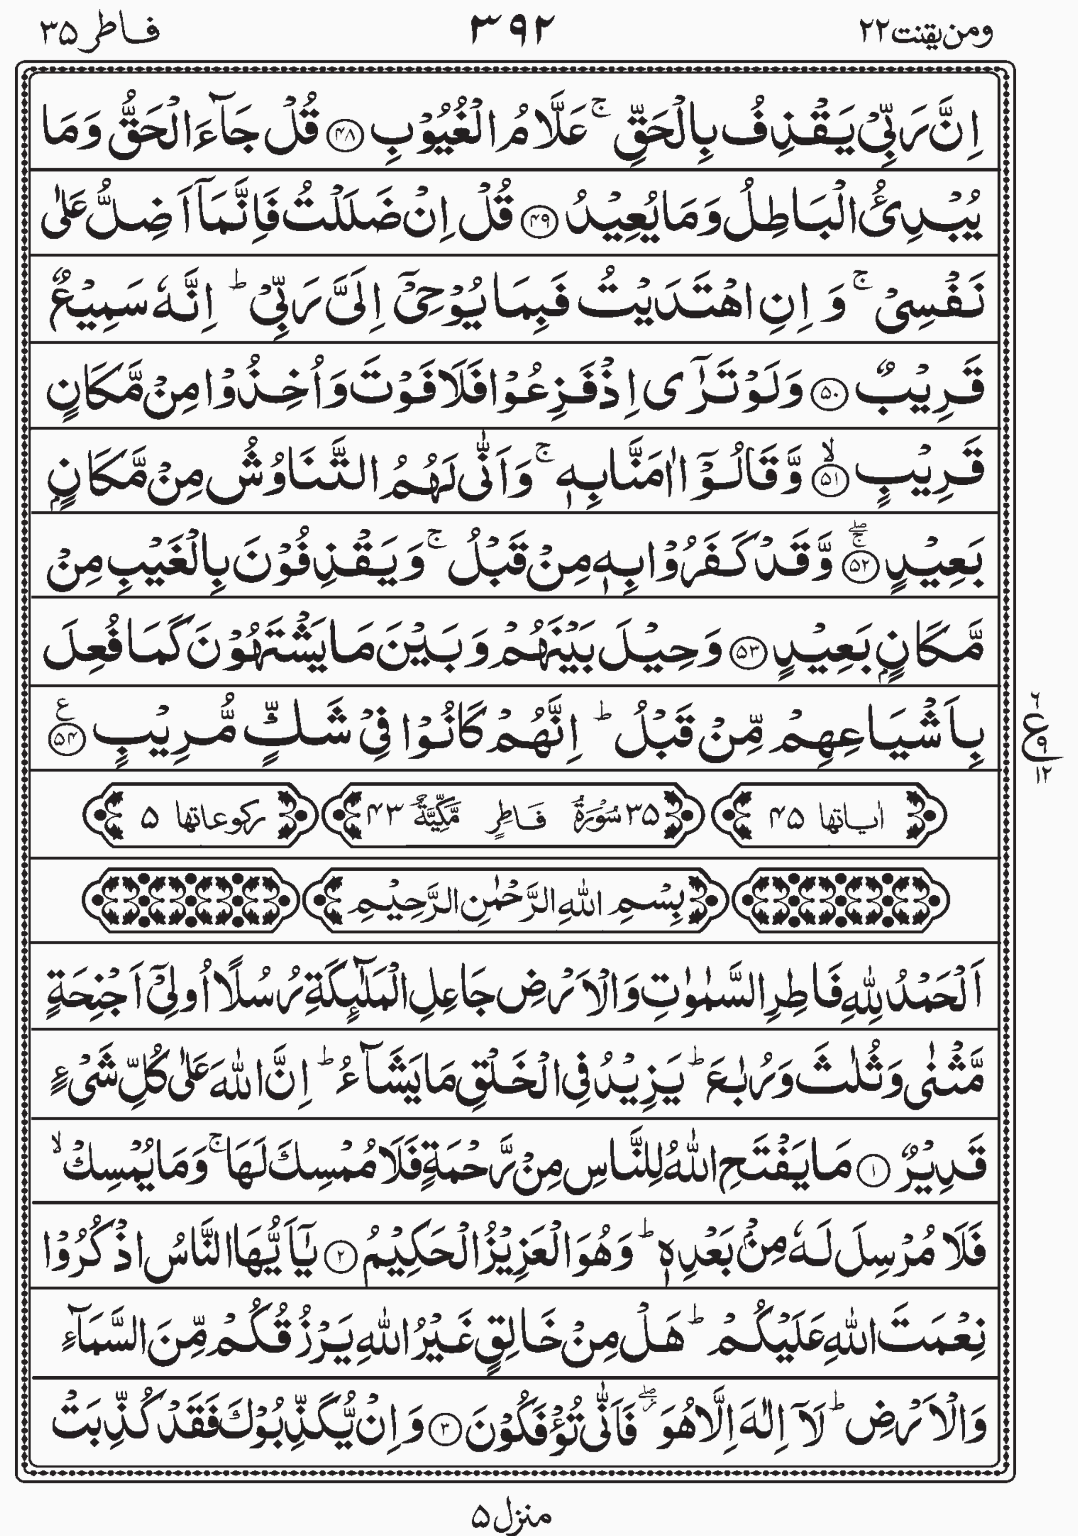 ومن يقنت ٢٢ ٣٩٢ فاطر ٣٥
اِنَّ رَبِّیْ یَقْذِفُ بِالْحَقِّ ۚ عَلَّامُ الْغُیُوْبِ ﴿۴۸﴾ قُلْ جَآءَ الْحَقُّ وَمَا
یُبْدِئُ الْبَاطِلُ وَمَا یُعِیْدُ ﴿۴۹﴾ قُلْ اِنْ ضَلَلْتُ فَاِنَّمَاۤ اَضِلُّ عَلٰی
نَفْسِیْ ۚ وَ اِنِ اهْتَدَیْتُ فَبِمَا یُوْحِیْۤ اِلَیَّ رَبِّیْ ؕ اِنَّهٗ سَمِیْعٌ
قَرِیْبٌ ﴿۵۰﴾ وَلَوْ تَرٰۤی اِذْ فَزِعُوْا فَلَا فَوْتَ وَاُخِذُوْا مِنْ مَّكَانٍ
قَرِیْبٍ ﴿۵۱﴾ۙ وَّقَالُوْۤا اٰمَنَّا بِهٖ ۚ وَاَنّٰی لَهُمُ التَّنَاوُشُ مِنْ مَّكَانٍۭ
بَعِیْدٍ ﴿۵۲﴾ۚۖ وَّقَدْ كَفَرُوْا بِهٖ مِنْ قَبْلُ ۚ وَیَقْذِفُوْنَ بِالْغَیْبِ مِنْ
مَّكَانٍۭ بَعِیْدٍ ﴿۵۳﴾ وَحِیْلَ بَیْنَهُمْ وَبَیْنَ مَا یَشْتَهُوْنَ كَمَا فُعِلَ
بِاَشْیَاعِهِمْ مِّنْ قَبْلُ ؕ اِنَّهُمْ كَانُوْا فِیْ شَكٍّ مُّرِیْبٍ ﴿۵۴﴾ ع
٦ ع ٩ ١٢
اٰیاتها ۴۵ ۳۵ سُوْرَةُ فَاطِرٍ مَّكِّیَّةٌ ۴۳ ركوعاتها ۵
بِسْمِ اللّٰهِ الرَّحْمٰنِ الرَّحِیْمِ
اَلْحَمْدُ لِلّٰهِ فَاطِرِ السَّمٰوٰتِ وَالْاَرْضِ جَاعِلِ الْمَلٰٓئِكَةِ رُسُلًا اُولِیْۤ اَجْنِحَةٍ
مَّثْنٰی وَثُلٰثَ وَرُبٰعَ ؕ یَزِیْدُ فِی الْخَلْقِ مَا یَشَآءُ ؕ اِنَّ اللّٰهَ عَلٰی كُلِّ شَیْءٍ
قَدِیْرٌ ﴿۱﴾ مَا یَفْتَحِ اللّٰهُ لِلنَّاسِ مِنْ رَّحْمَةٍ فَلَا مُمْسِكَ لَهَا ۚ وَمَا یُمْسِكْ ۙ
فَلَا مُرْسِلَ لَهٗ مِنْۢ بَعْدِهٖ ؕ وَهُوَ الْعَزِیْزُ الْحَكِیْمُ ﴿۲﴾ یٰۤاَیُّهَا النَّاسُ اذْكُرُوْا
نِعْمَتَ اللّٰهِ عَلَیْكُمْ ؕ هَلْ مِنْ خَالِقٍ غَیْرُ اللّٰهِ یَرْزُقُكُمْ مِّنَ السَّمَآءِ
وَالْاَرْضِ ؕ لَاۤ اِلٰهَ اِلَّا هُوَ ؗۖ فَاَنّٰی تُؤْفَكُوْنَ ﴿۳﴾ وَاِنْ یُّكَذِّبُوْكَ فَقَدْ كُذِّبَتْ
منزل ۵